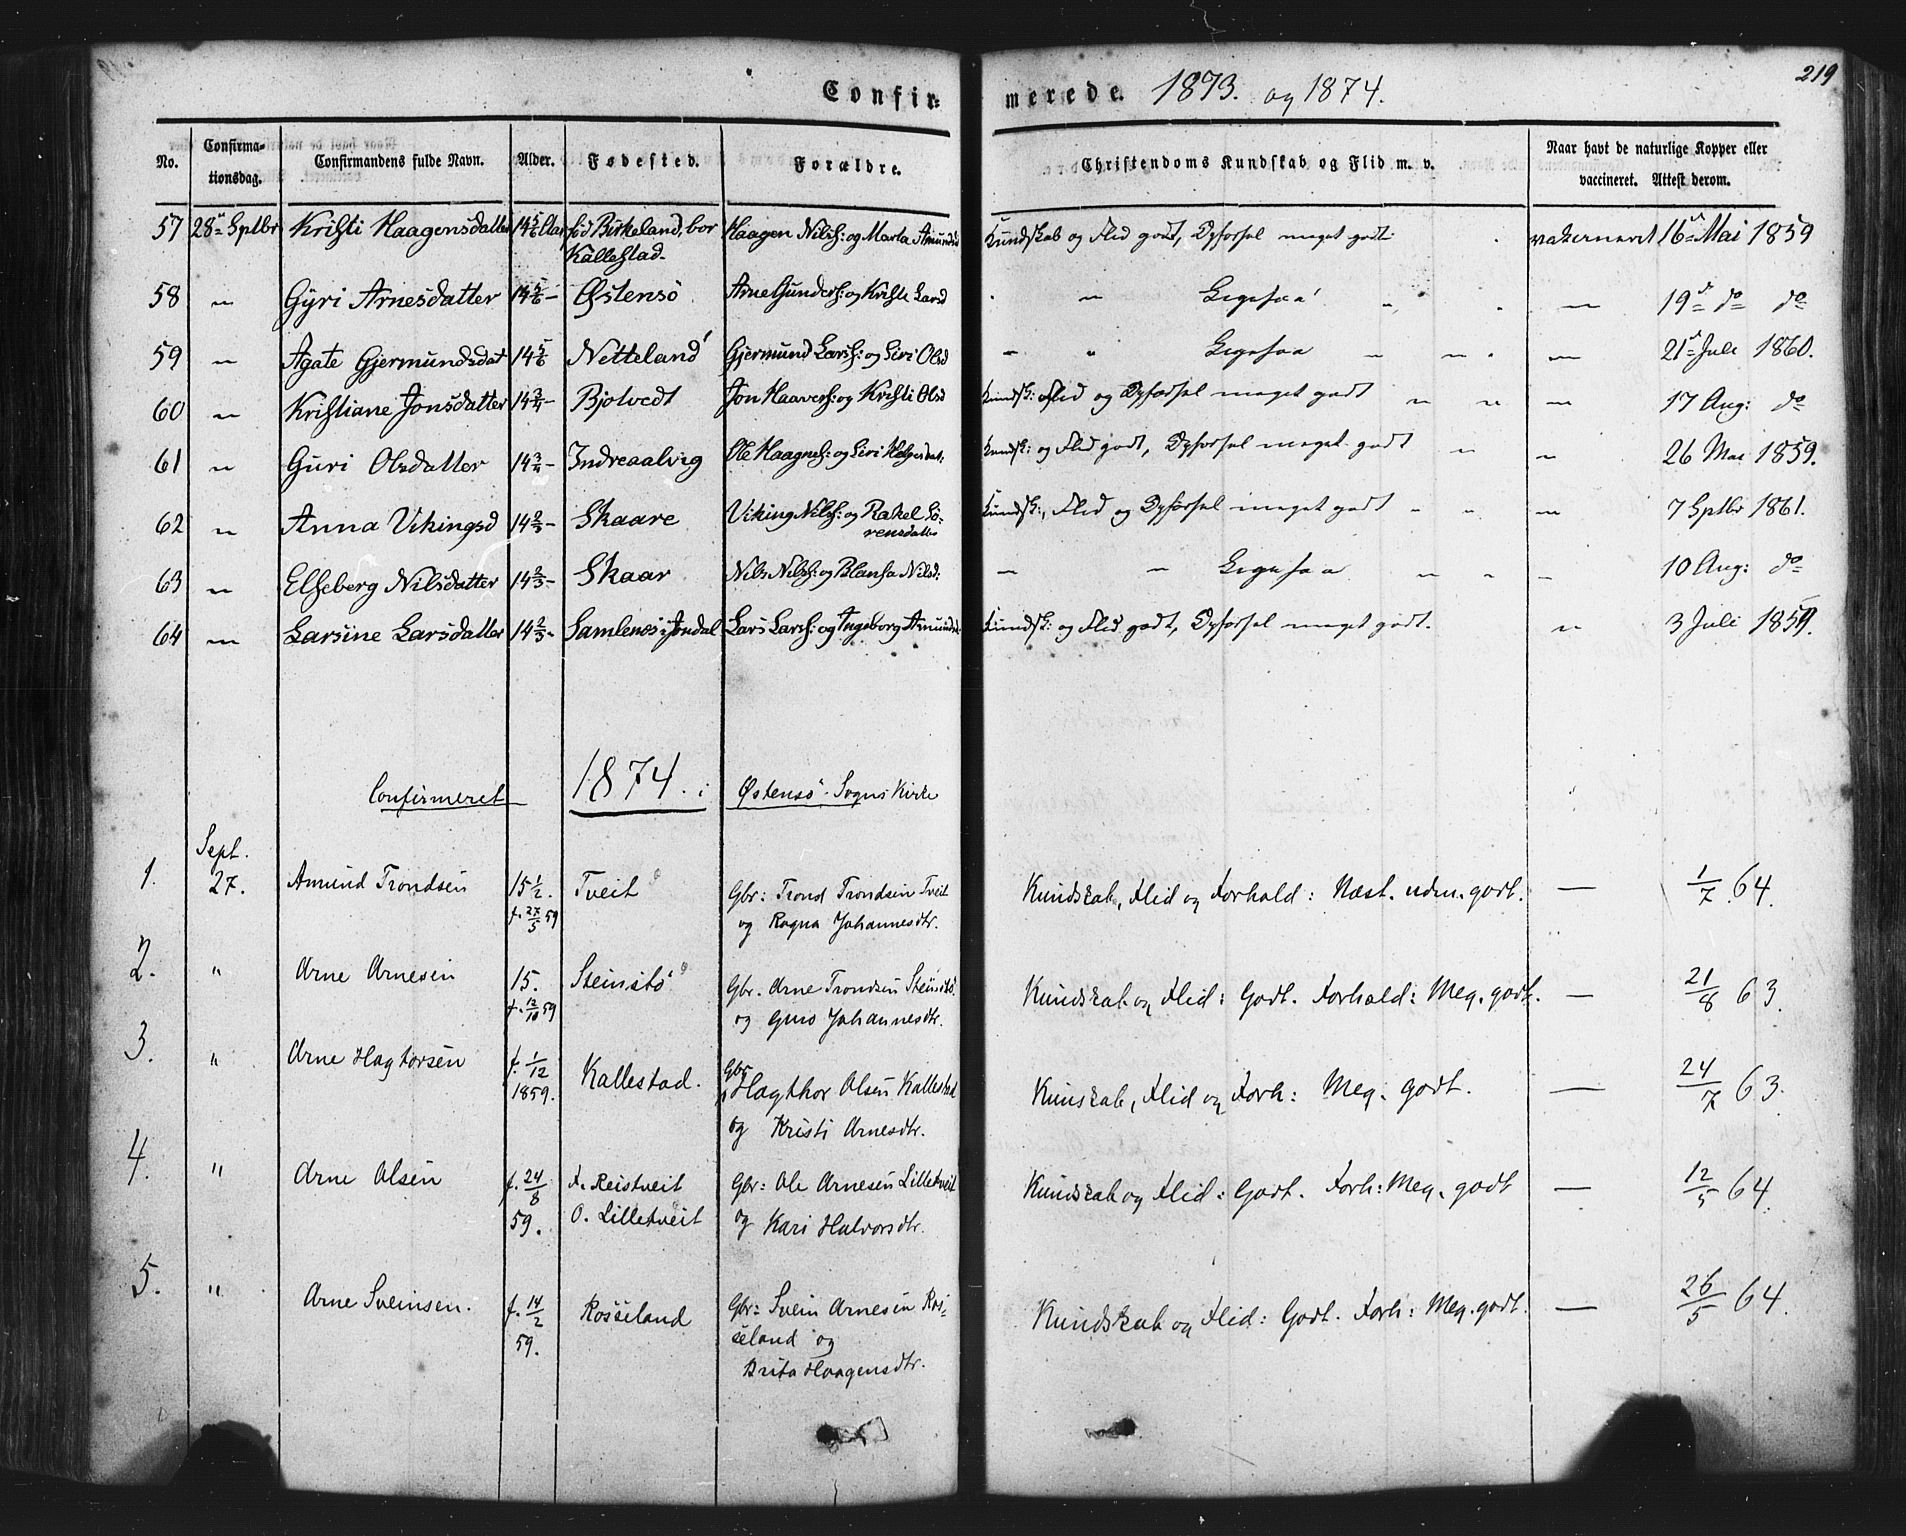 Confirmerede. 1873. og 1874.
219
No. Confirmationsdag. Confirmandens fulde Navn. Alder. Fødested. Forældre. Christendoms Kundskab og Flid m. v. Naar havt de naturlige Kopper eller vaccineret. Attest derom.
57 28de Sptbr Kristi Haagensdatter 14 5/6 Aar Birkeland, bor Haagen Nilss: og Marta Amundsd Kundskab og Flid godt, Opførsel meget godt vakcineret 16de Mai 1859
Kallestad.
58 " Gyri Arnesdatter 14 5/6 – Østensö Arne Gunders: og Kristi Larsd " Ligesaa " – 19de do do
59 " Agate Gjermundsdat 14 5/6 Netteland Gjermund Larss: og Siri Olsd – " Ligesaa " " – 21de Juli 1860.
60 " Kristiane Jonsdatter 14 3/4 – Bjotvedt Jon Haavers: og Kristi Olsd Kundsk: Flid og Opførsel meget godt " " – 17 Aug: do
61 " Guri Olsdatter 14 3/4 – Indreaalvig Ole Haagens: og Siri Helgesdat: Kundsk: og Flid godt, Opførsel meget godt " " 26 Mai 1859.
62 " Anna Vikingsd 14 2/3 – Skaare Viking Nilss: og Rakel Sö-
rensdatter Kundsk:, Flid og Opførsel meget godt " " – 7 Sptbr 1861.
63 " Elseberg Nilsdatter 14 2/3 – Skaar Nils Nilss: og Blansa Nilsd: – – Ligesaa " " – 10 Aug: do
64 " Larsine Larsdatter 14 2/3 – Samlenes i Jondal Lars Larss: og Ingeborg Amundsd: Kundsk: og Flid godt, Opførsel meget godt. " 3 Juli 1859.
Confirmeret 1874. i Østensö Sogns Kirke
Sept.
1. 27. Amund Trondsen 15 1/2. Tveit Gbr: Trond Trondsen Tveit Kundskab, Flid og Forhold: Næst. uden. godt. — 1/7 64.
f. 27/5 59 og Ragna Johannesdtr.
2. " Arne Arnesen 15. Steinstö Gbr. Arne Trondsen Steinstö Kundskab og Flid: Godt. Forhold: Meg. godt. — 21/8 63.
f. 12/10 59 og Guro Johannesdtr.
3. " Arne Hagtorsen f. 1/12 Kallestad. Gbr Hagthor Olsen Kallestad Kunskab, Flid og Forh: Meg. godt. — 24/7 63.
1859. og Kristi Arnesdtr.
4. " Arne Olsen f. 24/8 F. Reistveit Gbr: Ole Arnesen Lilletveit Kundskab og Flid: Godt. Forh: Meg. godt — 12/5 64.
59. O. Lilletveit og Kari Halvorsdtr.
5. " Arne Sveinsen. f. 14/2 Rosseland Gbr: Svein Arnesen Ros- Kundskab og Flid: Godt. Forh: Meg. godt. — 26/5 64.
59. seland og
Brita Haagensdtr.